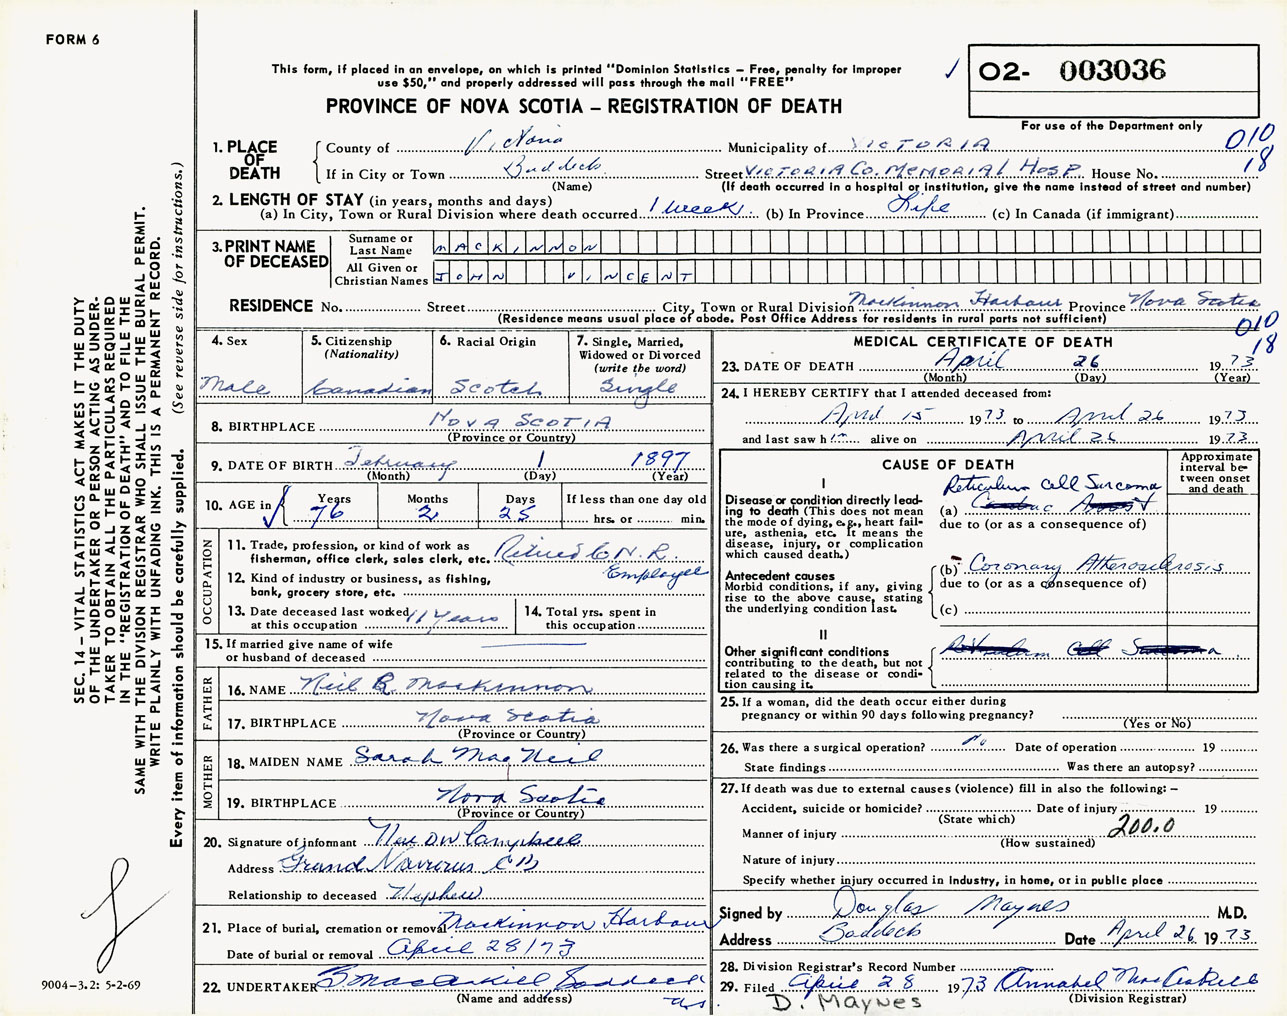 FORM 6
This form, if placed in an envelope, on which is printed "Dominion Statistics – Free, penalty for improper
use $50," and properly addressed will pass through the mail "FREE"
PROVINCE OF NOVA SCOTIA – REGISTRATION OF DEATH
02- 003036
For use of the Department only
010
18
1. PLACE OF DEATH
County of Victoria Municipality of VICTORIA
If in City or Town Baddeck Street VICTORIA CO. MEMORIAL HOSP. House No.
(Name) (If death occurred in a hospital or institution, give the name instead of street and number)
2. LENGTH OF STAY (in years, months and days)
(a) In City, Town or Rural Division where death occurred 1 week (b) In Province Life (c) In Canada (if immigrant)
3. PRINT NAME OF DECEASED
Surname or Last Name MACKINNON
All Given or Christian Names JOHN VINCENT
RESIDENCE No. Street City, Town or Rural Division MacKinnon Harbour Province Nova Scotia
(Residence means usual place of abode. Post Office Address for residents in rural parts not sufficient)
010
18
4. Sex
Male
5. Citizenship
(Nationality)
Canadian
6. Racial Origin
Scotch
7. Single, Married,
Widowed or Divorced
(write the word)
Single
8. BIRTHPLACE NOVA SCOTIA
(Province or Country)
9. DATE OF BIRTH February 1 1897
(Month) (Day) (Year)
10. AGE in Years Months Days If less than one day old
76 2 25 hrs. or min.
OCCUPATION
11. Trade, profession, or kind of work as
fisherman, office clerk, sales clerk, etc. Retired C.N.R.
Employee
12. Kind of industry or business, as fishing,
bank, grocery store, etc.
13. Date deceased last worked
at this occupation 11 years
14. Total yrs. spent in
this occupation
15. If married give name of wife
or husband of deceased
FATHER
16. NAME Neil R. MacKinnon
17. BIRTHPLACE Nova Scotia
(Province or Country)
MOTHER
18. MAIDEN NAME Sarah MacNeil
19. BIRTHPLACE Nova Scotia
(Province or Country)
20. Signature of informant Campbell
Address Grand Narrows CB
Relationship to deceased Nephew
21. Place of burial, cremation or removal MacKinnon Harbour
Date of burial or removal April 28/73
22. UNDERTAKER Baddeck
(Name and address)
N.S.
MEDICAL CERTIFICATE OF DEATH
23. DATE OF DEATH April 26 1973
(Month) (Day) (Year)
24. I HEREBY CERTIFY that I attended deceased from:
April 15 1973 to April 26 1973
and last saw him alive on April 26 1973
CAUSE OF DEATH
Approximate
interval be-
tween onset
and death
I
Disease or condition directly lead-
ing to death (This does not mean
the mode of dying, e.g., heart fail-
ure, asthenia, etc. It means the
disease, injury, or complication
which caused death.)
Reticulum Cell Sarcoma
(a) Cardiac Arrest
due to (or as a consequence of)
Antecedent causes
Morbid conditions, if any, giving
rise to the above cause, stating
the underlying condition last.
(b) Coronary Atherosclerosis
due to (or as a consequence of)
(c)
II
Other significant conditions
contributing to the death, but not
related to the disease or condi-
tion causing it.
Reticulum Cell Sarcoma
25. If a woman, did the death occur either during
pregnancy or within 90 days following pregnancy?
(Yes or No)
26. Was there a surgical operation? No Date of operation 19
State findings Was there an autopsy?
27. If death was due to external causes (violence) fill in also the following: –
Accident, suicide or homicide? Date of injury 19
(State which)
Manner of injury 200.0
(How sustained)
Nature of injury
Specify whether injury occurred in Industry, in home, or in public place
Signed by Douglas Maynes M.D.
Address Baddeck Date April 26 1973
28. Division Registrar's Record Number
29. Filed April 28 1973 Annabel MacAskill
(Division Registrar)
D. MAYNES
SEC. 14 – VITAL STATISTICS ACT MAKES IT THE DUTY
OF THE UNDERTAKER OR PERSON ACTING AS UNDER-
TAKER TO OBTAIN ALL THE PARTICULARS REQUIRED
IN THE "REGISTRATION OF DEATH" AND TO FILE THE
SAME WITH THE DIVISION REGISTRAR WHO SHALL ISSUE THE BURIAL PERMIT.
WRITE PLAINLY WITH UNFADING INK. THIS IS A PERMANENT RECORD.
Every item of information should be carefully supplied. (See reverse side for instructions.)
9004-3.2: 5-2-69